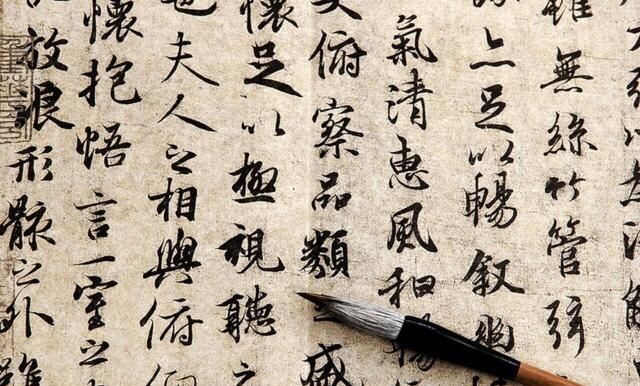 雖無絲竹管弦
亦足以暢敘幽
氣清惠風和暢
大俯察品類之盛
懷足以極視聽之
也夫人之相與俯仰
懷抱悟言一室之
放浪形骸之外雖